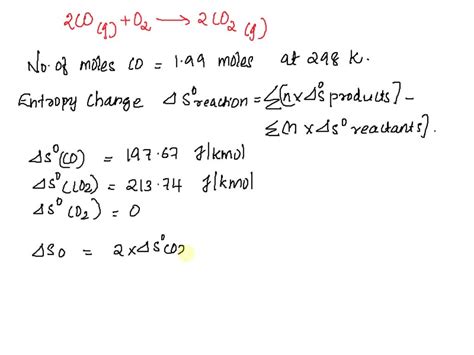 2CO(g) + O2 → 2CO2(g)
No. of moles CO = 1.99 moles at 298 K.
Entropy Change ΔS°reaction = Σ[n×ΔS° products] -
Σ[n × ΔS° reactants].
ΔS°(CO) = 197.67 J/kmol
ΔS°(CO2) = 213.74 J/kmol
ΔS°(O2) = 0
ΔS0 = 2×ΔS°(CO2